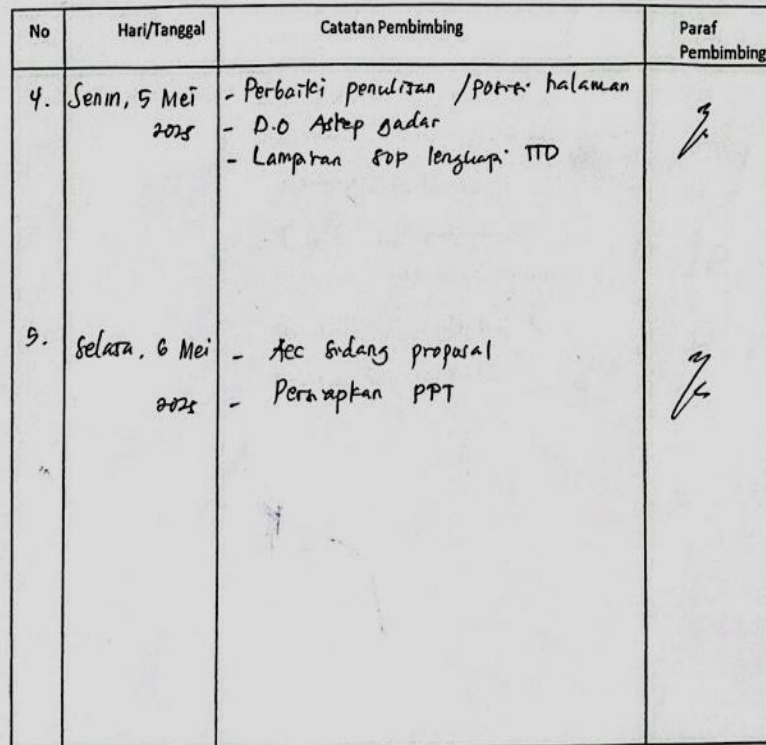 No Hari/Tanggal Catatan Pembimbing Paraf Pembimbing
4. Senin, 5 Mei - Perbaiki penulisan / posisi halaman
2025 - D.O Askep gadar
- Lampiran SOP lengkapi TTD
5. Selasa, 6 Mei - Acc sidang proposal
2025 - Persiapkan PPT